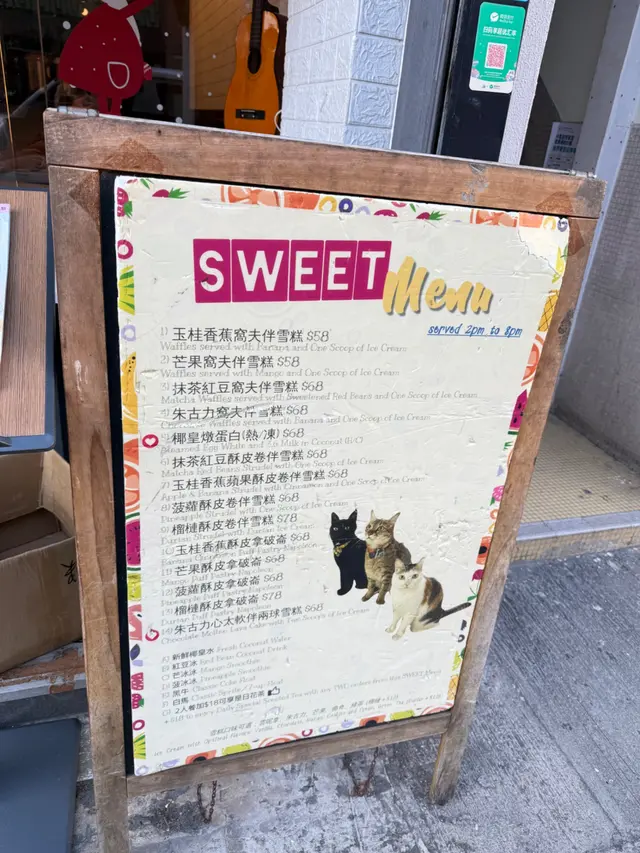 SWEET Menu
served 2pm to 8pm
1) 玉桂香蕉窩夫伴雪糕 $58
Waffles served with Banana and One Scoop of Ice Cream
2) 芒果窩夫伴雪糕 $58
Waffles served with Mango and One Scoop of Ice Cream
3) 抹茶紅豆窩夫伴雪糕 $68
Matcha Waffles served with Sweetened Red Beans and One Scoop of Ice Cream
4) 朱古力窩夫伴雪糕 $68
Waffles served with Banana and One Scoop of Ice Cream
5) 椰皇燉蛋白(熱/凍) $68
Steamed Egg White and Milk in Coconut (H/C)
6) 抹茶紅豆酥皮卷伴雪糕 $68
Matcha Red Beans Strudel with One Scoop of Ice Cream
7) 玉桂香蕉蘋果酥皮卷伴雪糕 $68
Apple & Banana Strudel with Cinnamon and One Scoop of Ice Cream
8) 菠蘿酥皮卷伴雪糕 $68
Pineapple Strudel with One Scoop of Ice Cream
9) 榴槤酥皮卷伴雪糕 $78
Durian Strudel with Durian Ice Cream
10) 玉桂香蕉酥皮拿破崙 $68
Banana Cinnamon Puff Pastry Napoleon
11) 芒果酥皮拿破崙 $68
Mango Puff Pastry Napoleon
12) 菠蘿酥皮拿破崙 $68
Pineapple Puff Pastry Napoleon
13) 榴槤酥皮拿破崙 $78
Durian Puff Pastry Napoleon
14) 朱古力心太軟伴兩球雪糕 $68
Chocolate Molten Lava Cake with Two Scoops of Ice Cream
A) 新鮮椰皇水 Fresh Coconut Water
B) 紅豆冰 Red Bean Coconut Drink
C) 芒冰冰 Mango Smoothie
D) 菠冰冰 Pineapple Smoothie
E) 黑牛 Classic Coke Float
F) 白馬 Classic Sprite
2人餐加$18可享是日花茶